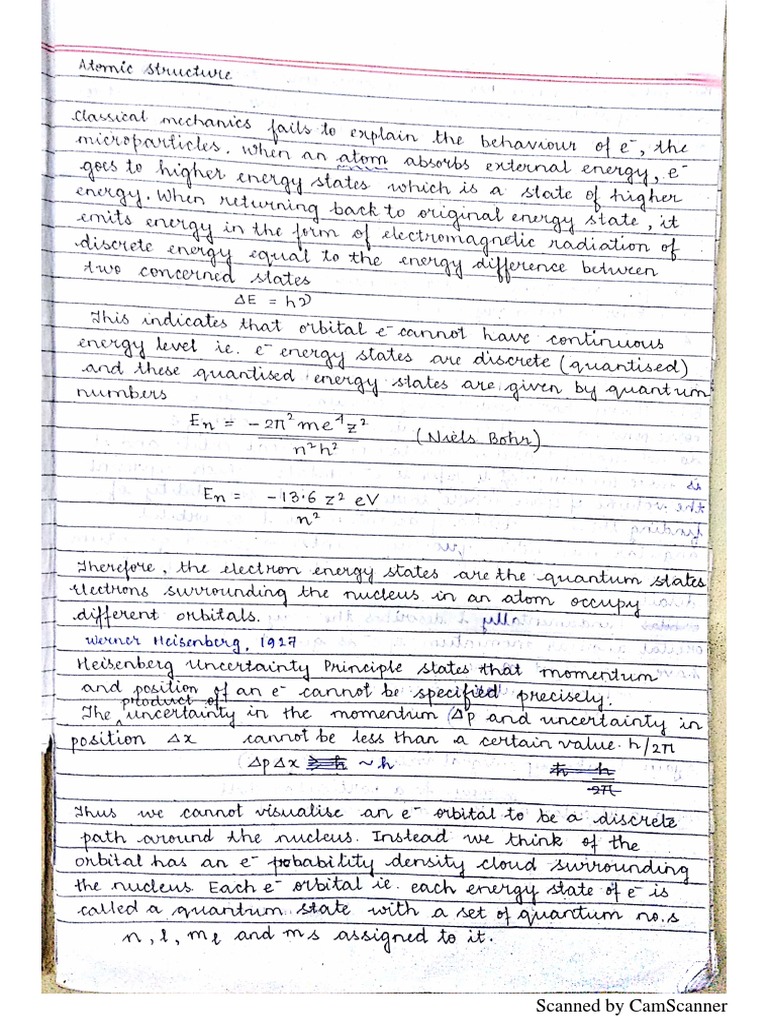 Atomic structure
Classical mechanics fails to explain the behaviour of e⁻, the
microparticles. When an atom absorbs external energy, e⁻
goes to higher energy states which is a state of higher
energy. When returning back to original energy state, it
emits energy in the form of electromagnetic radiation of
discrete energy equal to the energy difference between
two concerned states
ΔE = hν
This indicates that orbital e⁻ cannot have continuous
energy level ie. e⁻ energy states are discrete (quantised)
and these quantised energy states are given by quantum
numbers
En = -2π²me⁴z² / n²h² (Niels Bohr)
En = -13.6 z² eV / n²
Therefore, the electron energy states are the quantum states
electrons surrounding the nucleus in an atom occupy
different orbitals.
Werner Heisenberg, 1927
Heisenberg Uncertainty Principle states that momentum
and position of an e⁻ cannot be specified precisely.
The product of uncertainty in the momentum Δp and uncertainty in
position Δx cannot be less than a certain value. h/2π
(ΔpΔx ~ h
Thus we cannot visualise an e⁻ orbital to be a discrete
path around the nucleus. Instead we think of the
orbital has an e⁻ probability density cloud surrounding
the nucleus. Each e⁻ orbital ie. each energy state of e⁻ is
called a quantum state with a set of quantum no.s
n, l, ml and ms assigned to it.
Scanned by CamScanner